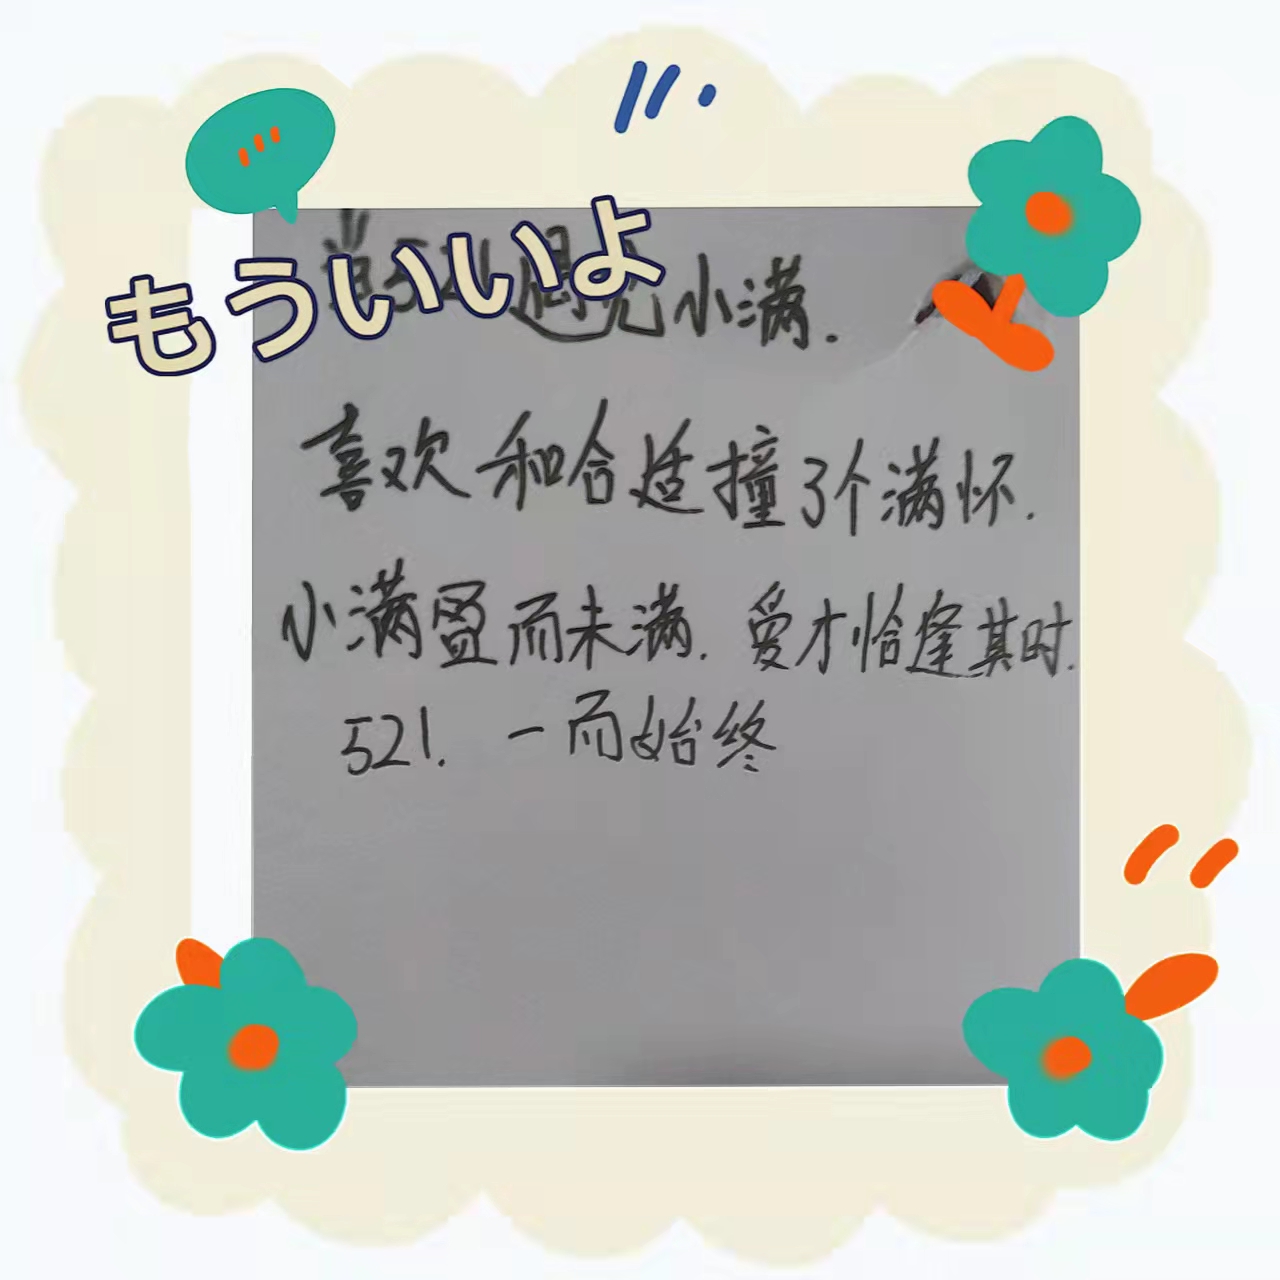 もういいよ
当521遇见小满.
喜欢和合适撞了个满怀.
小满盈而未满.爱才恰逢其时.
521. 一而始终